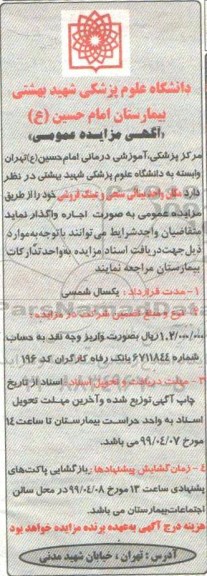 دانشگاه علوم پزشکی شهید بهشتی
بیمارستان امام حسین (ع)
«آگهی مزایده عمومی»
مرکز پزشکی،آموزشی درمانی امام حسین(ع)تهران
وابسته به دانشگاه علوم پزشکی شهید بهشتی در نظر
دارد مکان واحد سمعکی و عینک فروشی خود را از طریق
مزایده عمومی به صورت اجاره واگذار نماید
متقاضیان واجد شرایط می توانند با توجه به موارد
ذیل جهت دریافت اسناد مزایده به واحد تدارکات
بیمارستان مراجعه نمایند
۱- مدت قرارداد : یکسال شمسی
۲- نوع و مبلغ تضمین شرکت در مزایده :
ریال بصورت واریز وجه نقد به حساب
شماره ۶۷۱۱۸۴۴ بانک رفاه کارگران کد ۱۹۶
۳- مهلت دریافت و تحویل اسناد : اسناد از تاریخ
چاپ آگهی توزیع شده و آخرین مهلت تحویل
اسناد به واحد حراست بیمارستان تا ساعت ۱۴
مورخ ۹۹/۰۴/۰۷ می باشد.
۴- زمان گشایش پیشنهادها : بازگشایی پاکت های
پیشنهادی ساعت ۱۳ مورخ ۹۹/۰۴/۰۸ در محل سالن
اجتماعات بیمارستان می باشد.
هزینه درج آگهی به عهده برنده مزایده خواهد بود
آدرس : تهران ، خیابان شهید مدنی